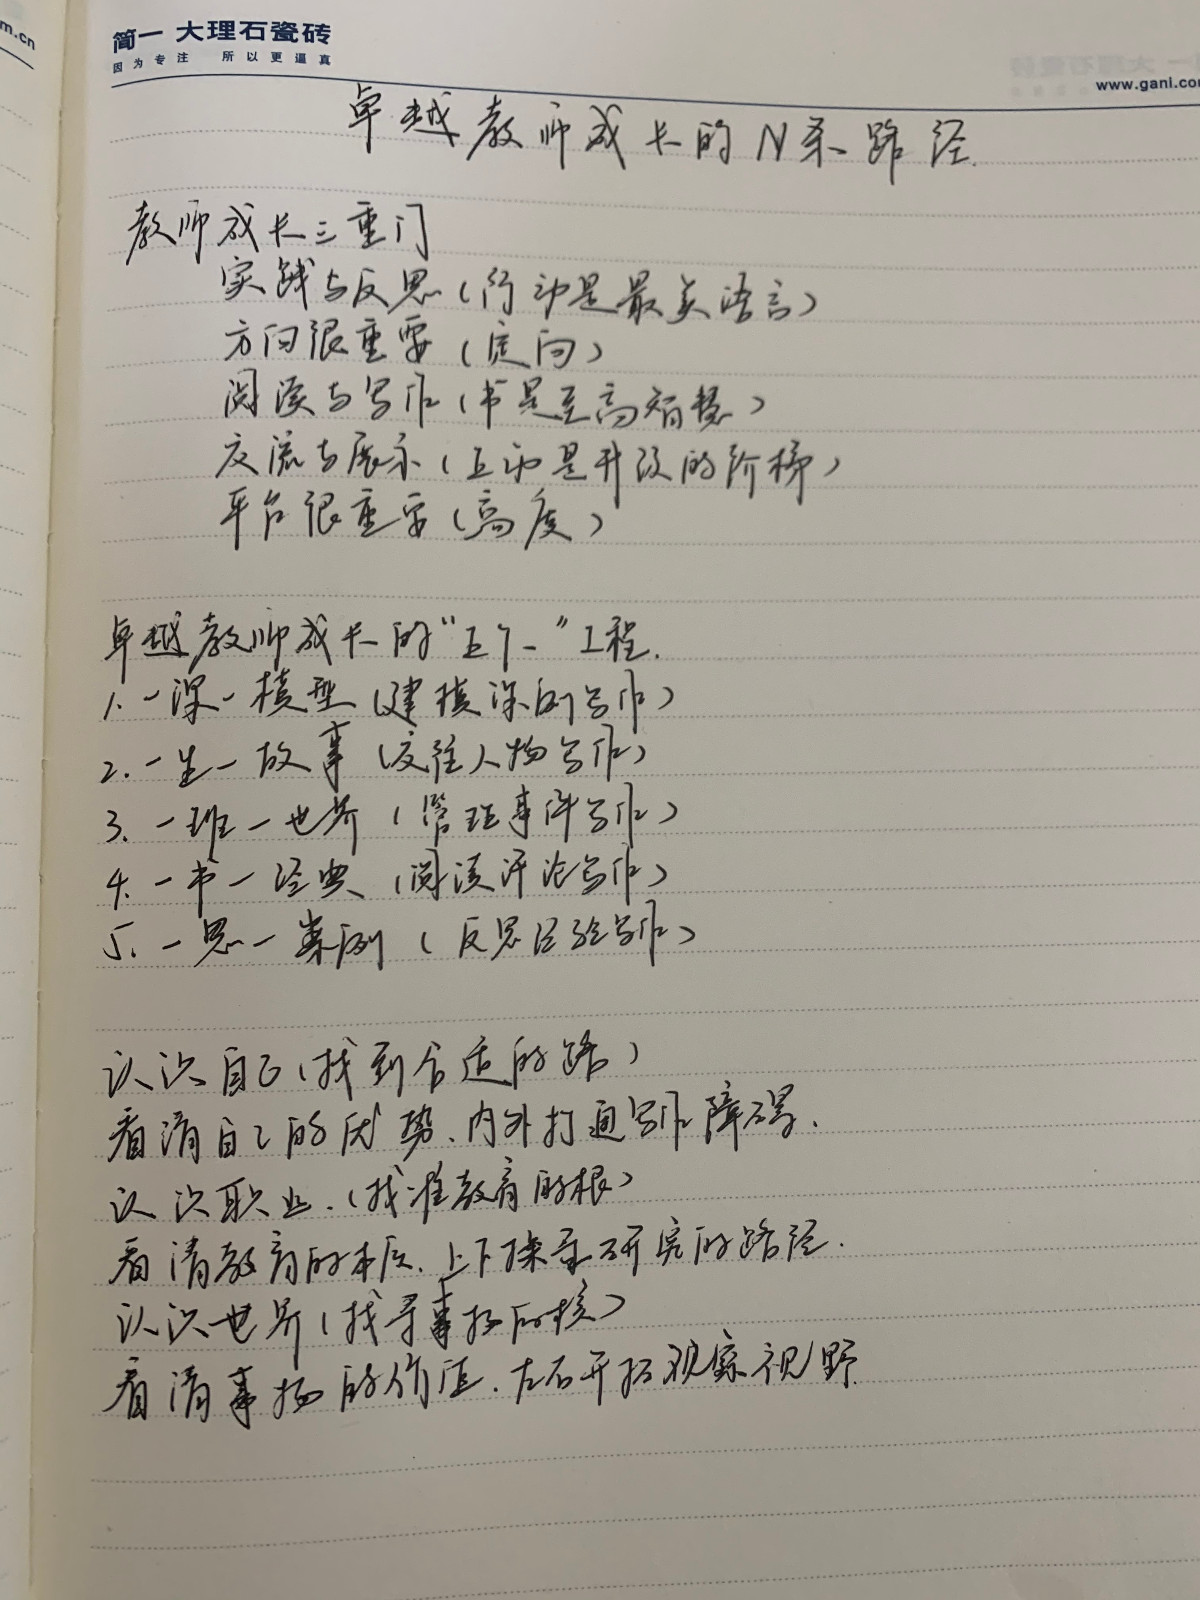 m.cn
简一 大理石瓷砖
因为专注 所以更逼真
www.gani.co
卓越教师成长的N条路径.
教师成长三重门
实践与反思(行动是最美语言)
方向很重要(定向)
阅读与写作(书是至高智慧)
交流与展示(互动是升级的阶梯)
平台很重要(高度)
卓越教师成长的“五个一”工程.
1.一课一模型(建模课例写作)
2.一生一故事(交往人物写作)
3.一班一世界(管理事件写作)
4.一书一经典(阅读评论写作)
5.一思一案例(反思经验写作)
认识自己(找到合适的路)
看清自己的优势.内外打通写作障碍.
认识职业.(找准教育的根)
看清教育的本质.上下探寻研究的路径.
认识世界(找寻事物的核)
看清事物的价值.左右开拓观察视野.